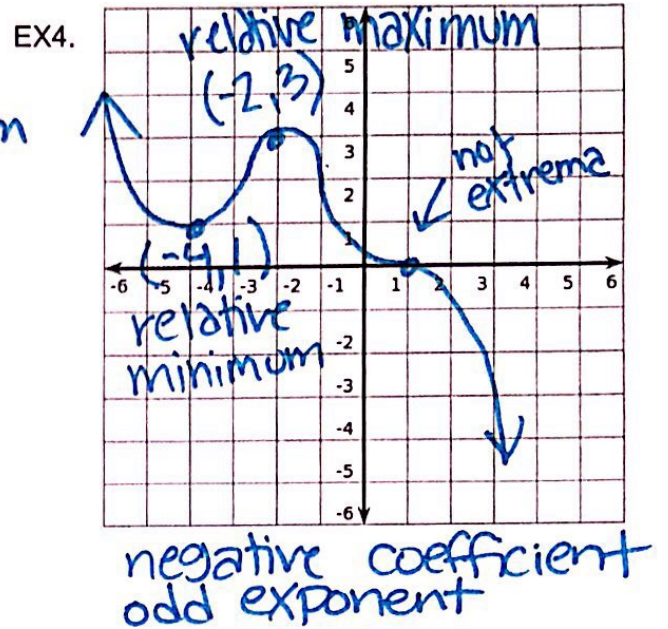 EX4.
relative maximum
(-2,3)
not
extrema
(-4,1)
relative
minimum
6
5
4
3
2
1
-6 -5 -4 -3 -2 -1 1 2 3 4 5 6
-2
-3
-4
-5
-6
negative coefficient
odd exponent